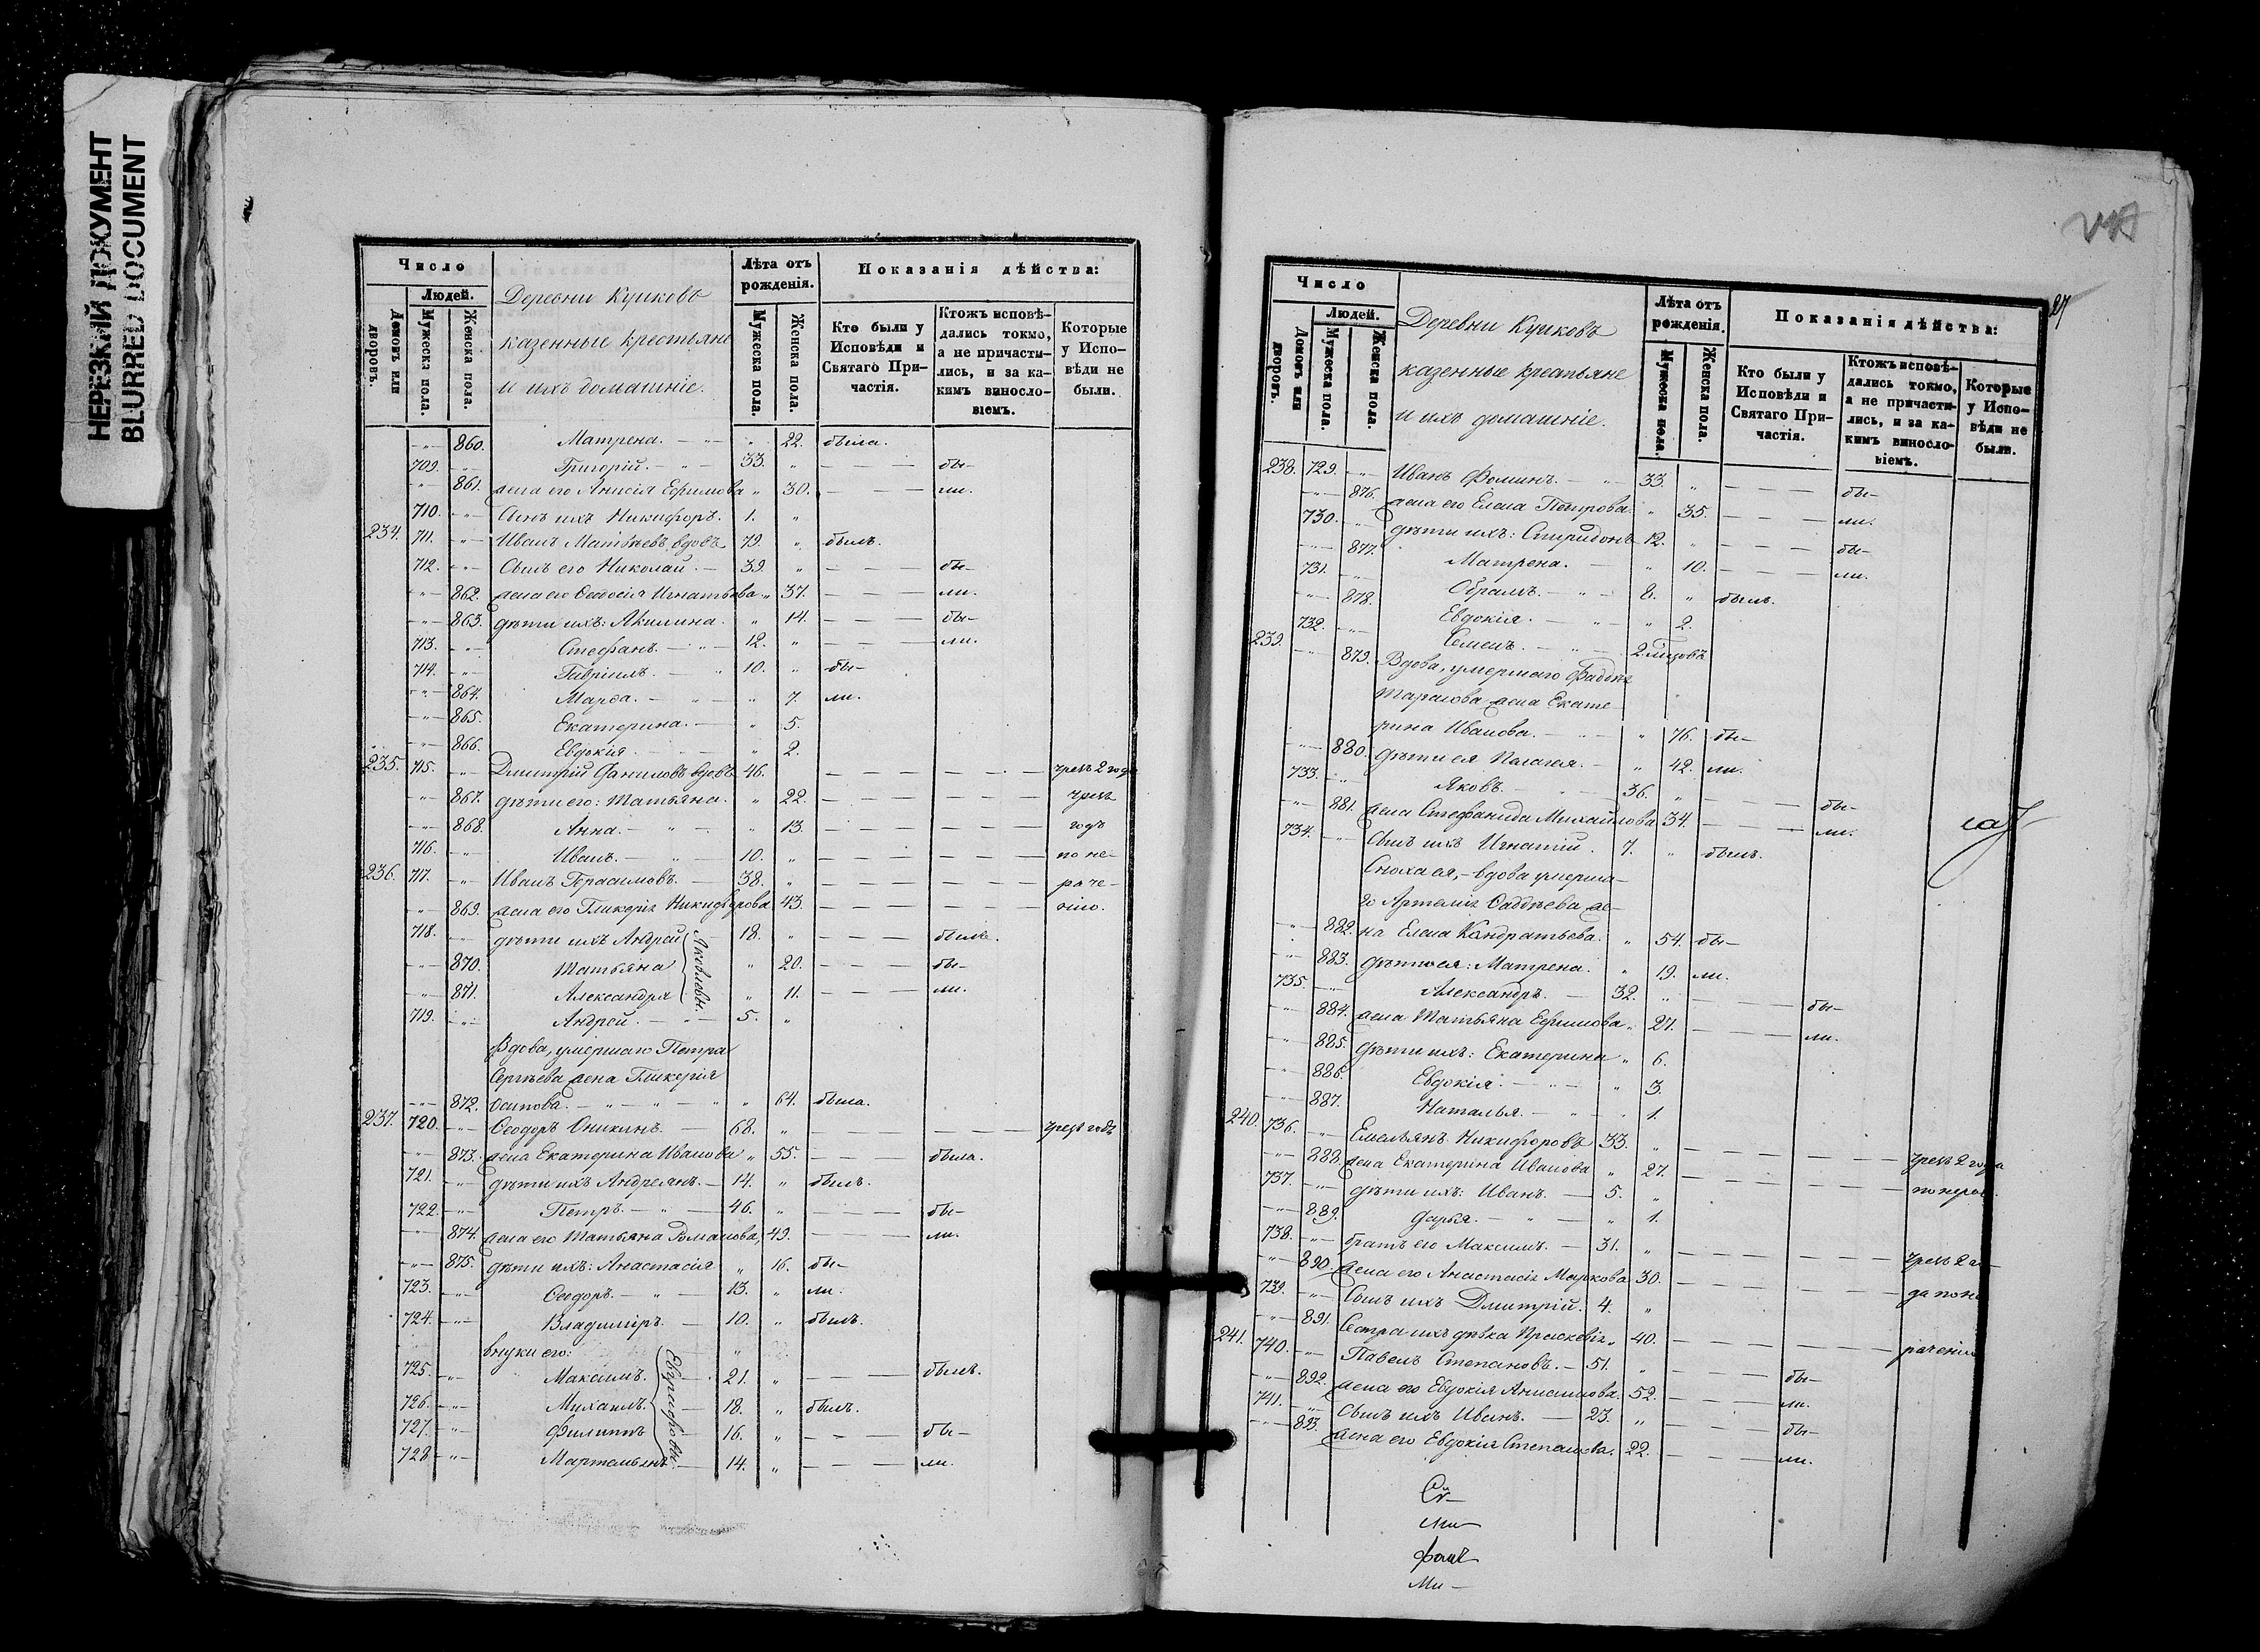 НЕРЕЗКИЙ ДОКУМЕНТ
BLURRED DOCUMENT
Число
Людей.
Домовъ или дворовъ.
Мужеска пола.
Женска пола.
Деревни Куиковъ
казенные крестьяне
и ихъ домашніе.
Лѣта отъ рожденія.
Мужеска пола.
Женска пола.
Показанія дѣйства:
Кто были у Исповѣди и Святаго Причастія.
Ктожъ исповѣдались токмо, а не причастились, и за какимъ винословіемъ.
Которые у Исповѣди не были.
-"- 860. Матрена. — " — " 22. была.
709. -"- Григорій. — " — 33. " — — — бы-
-"- 861. жена его Анисія Ефимова " 30. — — — ли.
710. -"- Сынъ ихъ Никифоръ. 1. "
234. 711. -"- Иванъ Матѣевъ вдовъ 79. " былъ.
712. -"- Сынъ его Николай. — 39. " — — — бы-
-"- 862. жена его Ѳеодосія Игнатьева " 37. — — — ли.
-"- 863. дѣти ихъ: Акилина. " 14. — — — бы-
713. -"- Стефанъ. — " — 12. " — — — ли.
714. -"- Гавріилъ. — " 10. " бы-
-"- 864. Марѳа. — " — " 7. ли.
-"- 865. Екатерина. — " 5.
-"- 866. Евдокія. — " 2.
235. 715. -"- Дмитрій Даниловъ вдовъ 46. — — — — — чрезъ 2 года
-"- 867. дѣти его: Татьяна. " 22. — — — — — чрезъ
-"- 868. Анна. — " — " 13. — — — — — годъ
716. -"- Иванъ. — " — 10. " — — — — — по не-
236. 717. -"- Иванъ Герасимовъ. — 38. " — — — — — раче-
-"- 869. жена его Гликерія Никифорова 43. — — — — — нію.
718. -"- дѣти ихъ Андрей 18. " — — — былъ.
-"- 870. Татьяна " 20. — — — бы-
-"- 871. Александра " 11. — — — ли.
Яковлевы.
719. -"- Андрей. — " — 5. "
Вдова, умершаго Петра
Сергѣева жена Гликерія
-"- 872. Осипова. — " — " — " " 64. была.
237. 720. -"- Ѳеодоръ Оникинъ. — 68. " — — — — чрезъ годъ
-"- 873. жена Екатерина Иванова " 55. — — была.
721. -"- дѣти ихъ Андреянъ. — 14. " былъ.
722. -"- Петръ. — " — 46. " — — — бы-
-"- 874. жена его Татьяна Романова, 49. — — — ли.
-"- 875. дѣти ихъ: Анастасія " 16. бы-
723. -"- Ѳеодоръ. — " — 13. " ли.
724. -"- Владиміръ. — 10. " былъ.
внуки его:
725. -"- Максимъ. 21. " — — — былъ.
726. -"- Михаилъ. 18. " былъ.
727. -"- Филиппъ 16. " — — — бы-
728 -"- Мартемьянъ. — 14. " — — — ли.
27
Число
Людей.
Домовъ или дворовъ.
Мужеска пола.
Женска пола.
Деревни Куиковъ
казенные крестьяне
и ихъ домашніе.
Лѣта отъ рожденія.
Мужеска пола.
Женска пола.
Показанія дѣйства:
Кто были у Исповѣди и Святаго Причастія.
Ктожъ исповѣдались токмо, а не причастились, и за какимъ винословіемъ.
Которые у Исповѣди не были.
238. 729. -"- Иванъ Фоминъ. — " — 33. " — — — бы-
-"- 876. жена его Елена Петрова. " 35. — — — ли.
730. -"- дѣти ихъ: Спиридонъ 12. " — — — бы-
-"- 877. Матрена. — " 10. — — — ли.
731. -"- Обрамъ. — " — 8. " былъ.
-"- 878. Евдокія. — " — " 2.
732. -"- Семенъ. — " — 2.
239. -"- 879. Вдова, умершаго Фаддѣя
Тарасова жена Екате
рина Иванова. — " — " 76. бы-
-"- 880. дѣти ея Пелагея. — " 42. ли.
733. -"- Яковъ. — " — 36. " — — — бы-
-"- 881. жена Стефанида Михайлова 34. — — — ли.
734. -"- Сынъ ихъ Игнатій. 7. " былъ.
Сноха ея, – вдова умерша–
го Артемія Ѳаддѣева же–
-"- 882. на Елена Кондратьева. " 54. бы-
-"- 883. дѣти ея: Матрена. " 19. ли.
735. -"- Александръ. — 32. " — — — бы-
-"- 884. жена Татьяна Ефимова " 27. — — — ли.
-"- 885. дѣти ихъ: Екатерина " 6.
-"- 886. Евдокія. — " — " 3.
-"- 887. Наталья. — " — " 1.
240. 736. -"- Емельянъ Никифоровъ 33. " — — — — — чрезъ 2 года
-"- 888. жена Екатерина Иванова " 27. — — — — —
737. -"- дѣти ихъ: Иванъ. — 5. "
-"- 889. Дарья. — " — " 1.
738. -"- братъ его Максимъ. — 31. " — — — — — чрезъ 2 го-
-"- 890. жена его Анастасія Маркова 30. — — — — — да по не
739. -"- Сынъ ихъ Дмитрій. 4. "
-"- 891. Сестра ихъ дѣвка Праскевія " 40. — — — — — раченію
241. 740. -"- Павелъ Степановъ. — 51. " — — — бы-
-"- 892. жена его Евдокія Анисимова. 52. — — — ли.
741. -"- Сынъ ихъ Иванъ. — 23. " — — — бы-
-"- 893. жена его Евдокія Степанова. 22. — — — ли.